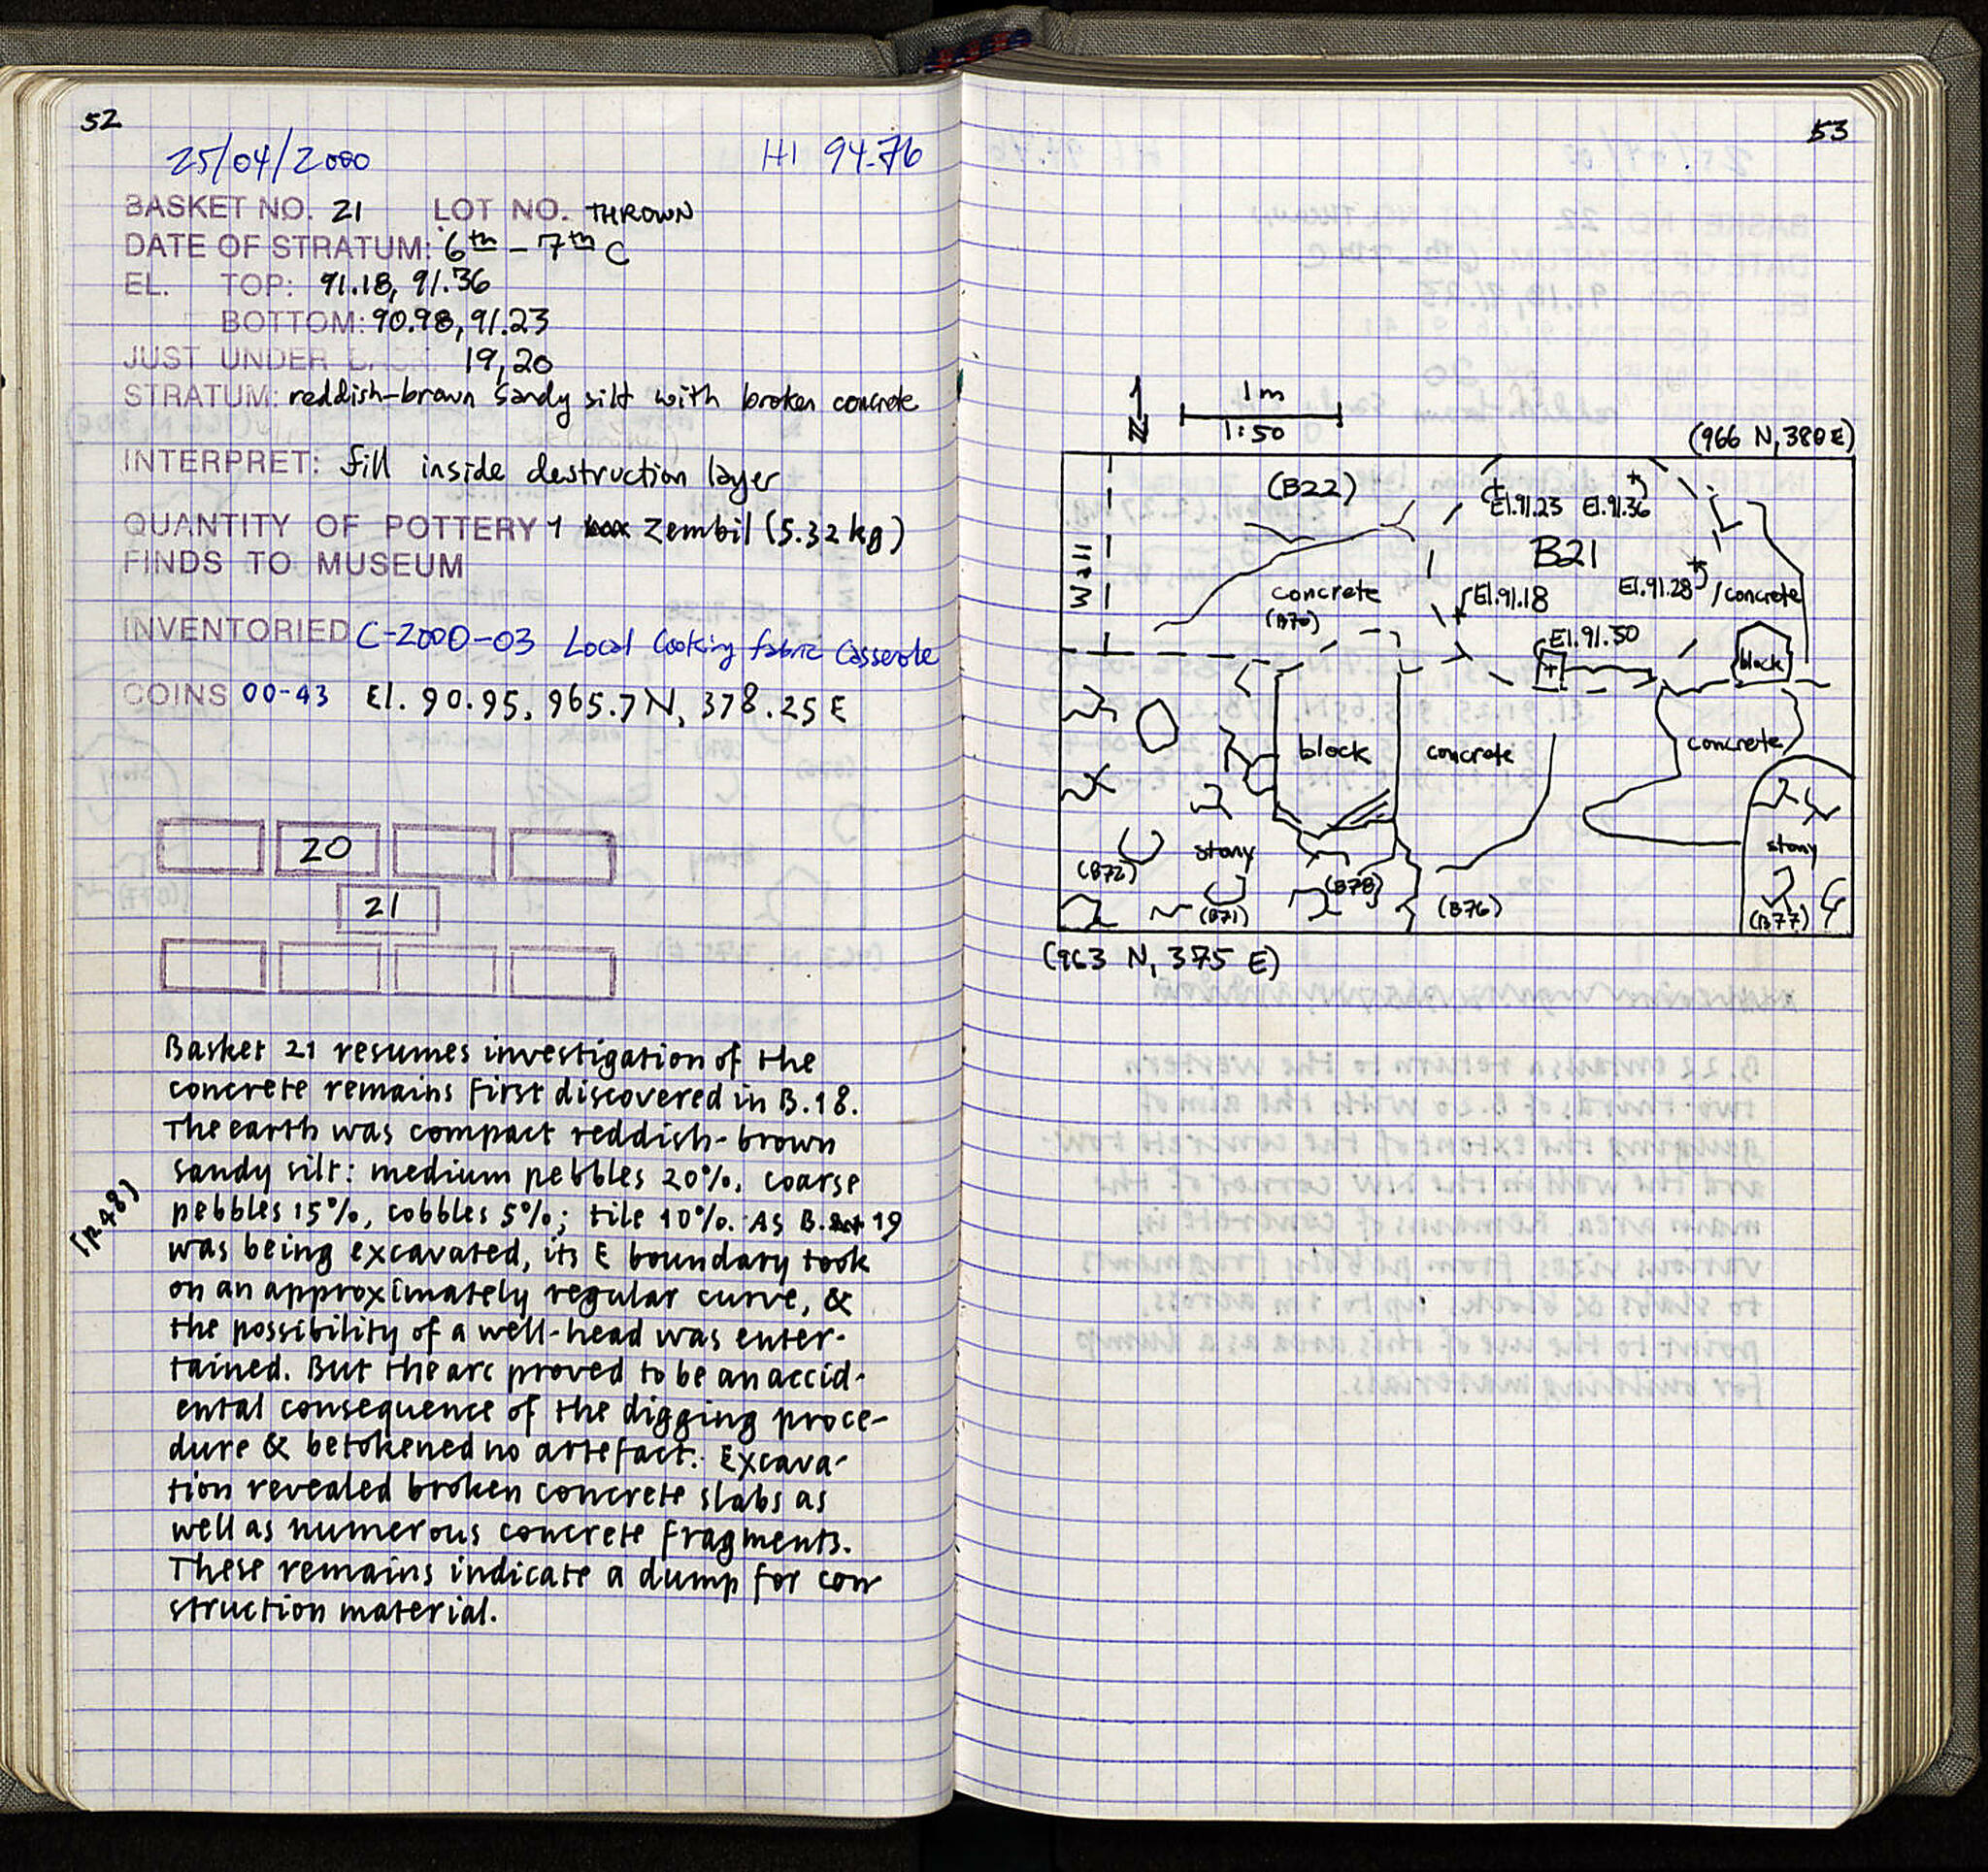 52
25/04/2000 HI 94.76
BASKET NO. 21 LOT NO. THROWN
DATE OF STRATUM: 6th - 7th C
EL. TOP: 91.18, 91.36
BOTTOM: 90.98, 91.23
JUST UNDER 19, 20
STRATUM: reddish-brown sandy silt with broken concrete
INTERPRET: fill inside destruction layer
QUANTITY OF POTTERY 1 Zembil (5.32 kg)
FINDS TO MUSEUM
INVENTORIED C-2000-03 Local Cooking fabric Casserole
COINS 00-43 El. 90.95, 965.7 N, 378.25 E
20
21
Basket 21 resumes investigation of the
concrete remains first discovered in B.18.
The earth was compact reddish-brown
sandy silt: medium pebbles 20%, coarse
pebbles 15%, cobbles 5%; tile 10%. As B. 19
(p. 48)
was being excavated, its E boundary took
on an approximately regular curve, &
the possibility of a well-head was enter-
tained. But the arc proved to be an accid-
ental consequence of the digging proce-
dure & betokened no artefact. Excava-
tion revealed broken concrete slabs as
well as numerous concrete fragments.
These remains indicate a dump for con
struction material.
53
N
1 m
1:50
(966 N, 380 E)
(B22)
El.91.23 El.91.36
B21
Wall
concrete
(B70)
El.91.18
El.91.28
concrete
El.91.50
block
block
concrete
concrete
stony
(B72)
stony
(B78)
(B71)
(B76)
(B77)
(963 N, 375 E)